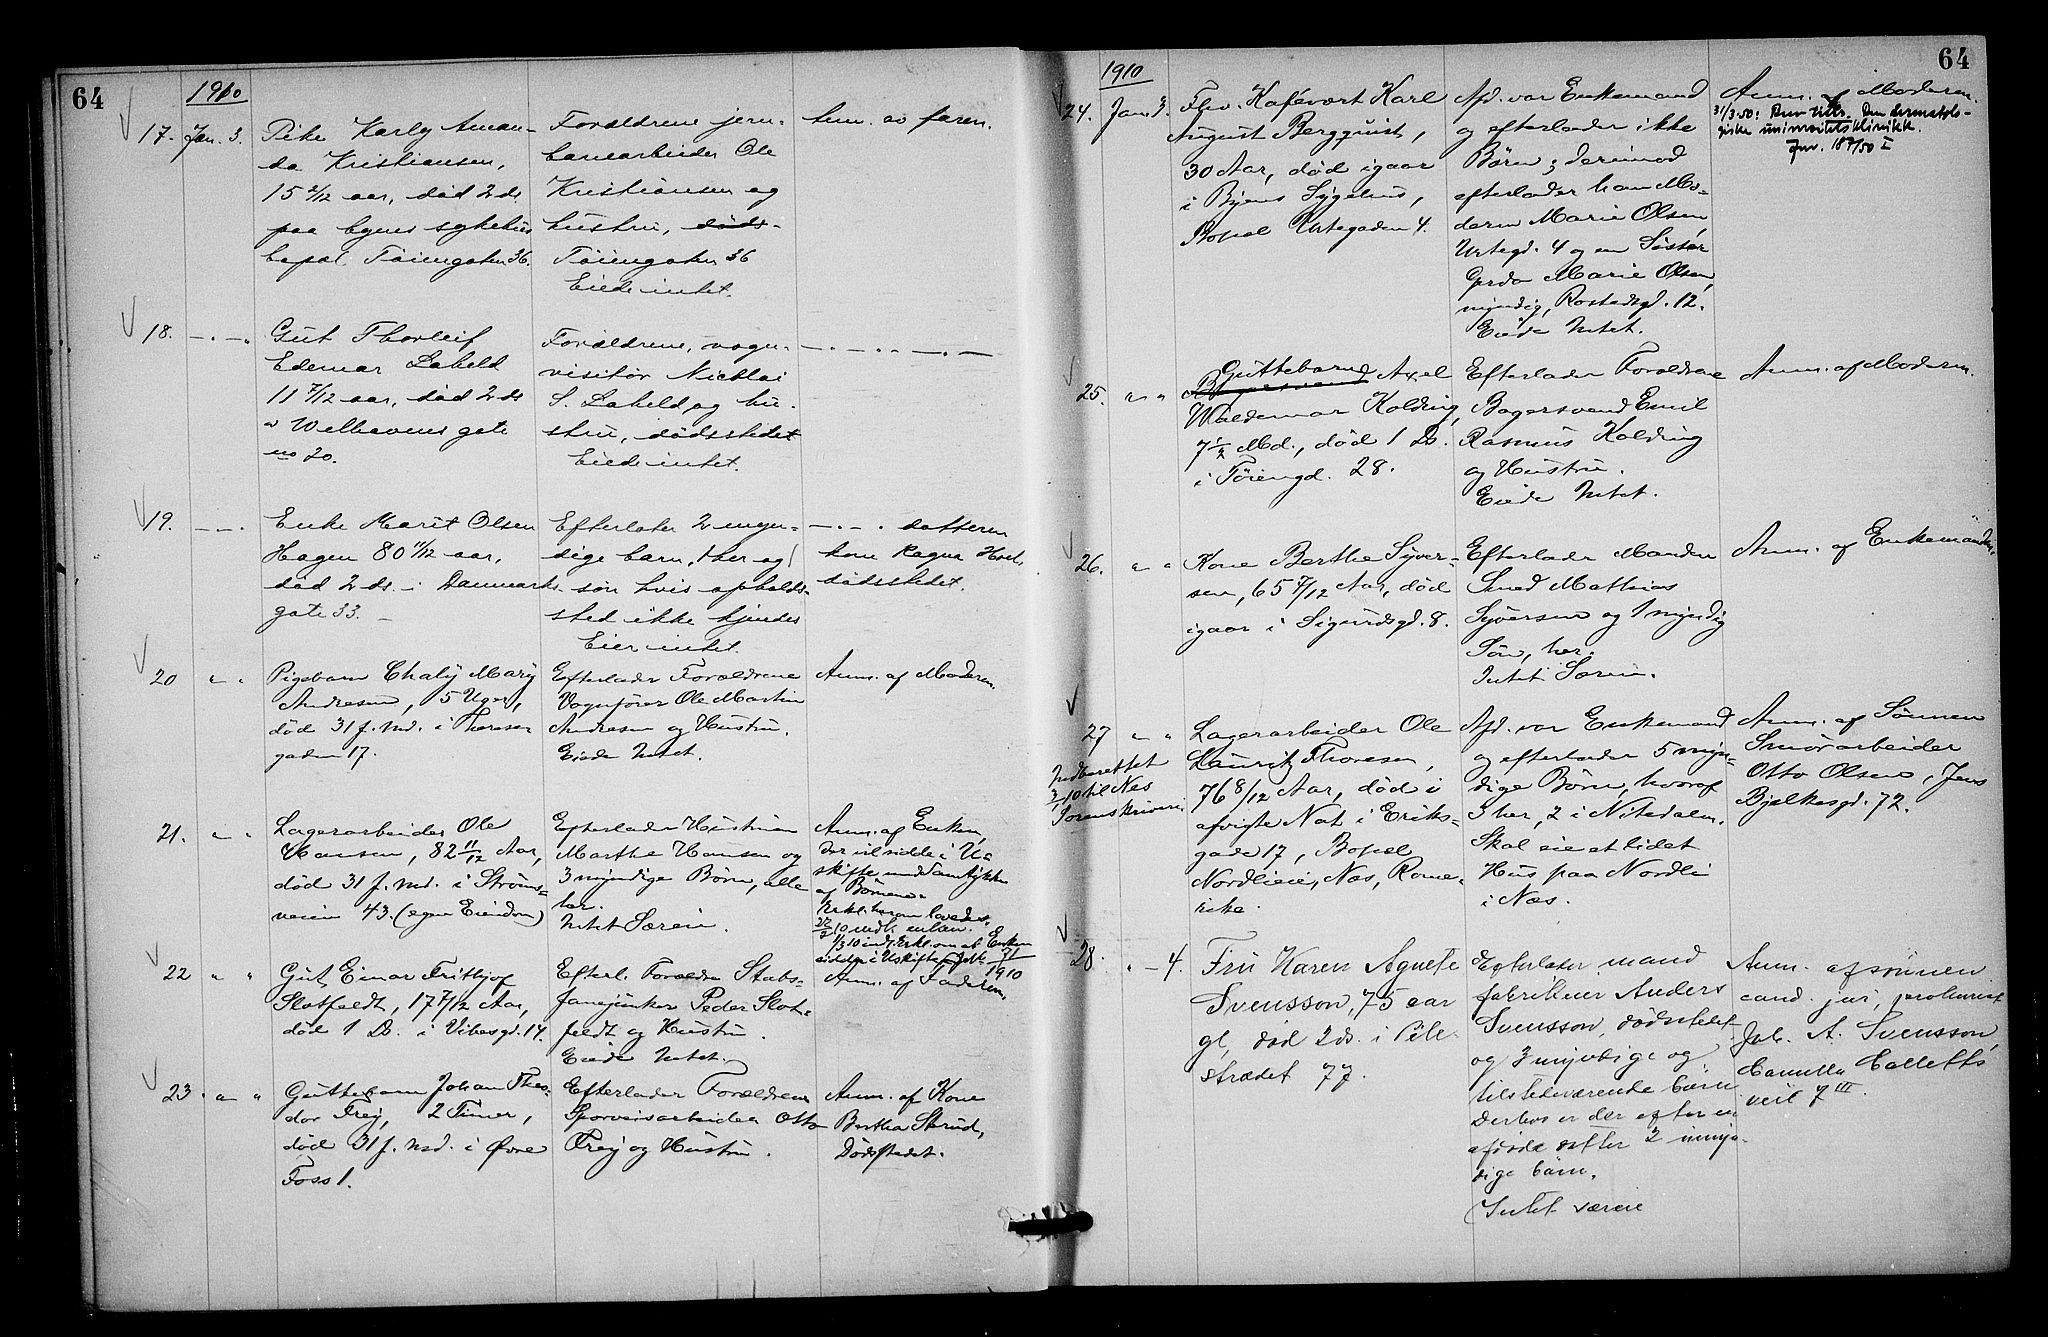 64
1910
17. Jan. 3.
Pike Karly Aman-
da Kristiansen,
15 2/12 aar, død 2 ds
paa byens sykehus
bopæl Tøiengaten 36.
Forældrene jern-
banearbeider Ole
Kristiansen og
hustru, døds-
Tøiengaten 36
Eiede intet.
av faren.
18. — . — "
Gut Thorleif
Edemar Labeld
11 7/12 aar, død 2 ds
Welhavens gate
no 20.
Forældrene, vogn-
visitør Nicolai
S. Labeld og hu-
stru, dødsstedet
Eiede intet.
— . — . . — . —
19. — . — .
Enke Marit Olsen
Hagen 80 11/12 aar,
død 2 ds. i Danmarks
gate 33. –
Efterlater 2 myn-
dige barn, 1 her og 1
søn hvis opholds-
sted ikke kjendes
Eier intet.
— . — . datteren
kone Ragna
dødsstedet.
20 " "
Pigebarn Chaly Mary
Andresen, 5 Uger,
død 31 f. Md. i Therese
gaden 17.
Efterlader Forældrene
Vognfører Ole Martin
Andresen og Hustru.
Eiede Intet.
Anm. af Moderen.
21. " "
Lagerarbeider Ole
Hansen, 82 11/12 Aar,
død 31 f. Md. i Strøms-
veien 43. (egen Eiendom)
Efterlader Hustruen
Marthe Hansen og
3 myndige Børn, alle
her.
Intet Særeie.
Anm. af Enken,
der vil sidde i U-
skifte med Samtykke
af Børnene.
Erkl. herom lovedes.
1/3 10 indk. Erkl. om at Enken
sidder i Uskifte Jvk. 71/1910
22 " "
Gut Einar Fritjof
Slotfeldt, 17 7/12 Aar,
død 1 Ds. i Vibesgd. 14.
Efterl. Forældre Stabs-
fanejunker Peder Slot-
feldt og Hustru.
Eiede Intet.
Anm. af Faderen.
23 " "
Guttebarn Johan Theo-
dor Frej, 2 Timer,
død 31 f. Md. i Øvre
Foss 1.
Efterlader Forældrene
Sporveisarbeider Otto
Frej og Hustru.
Anm. af Kone
Bertha Skrud,
Dødsstedet.
64
1910
24. Jan. 3.
Fhv. Kafévært Karl
August Bergquist,
30 Aar, død igaar
i Byens Sygehus,
Bopæl Urtegaden 4.
Afd. var Enkemand
og efterlader ikke
Børn; derimod
efterlader han Mo-
deren Marie Olsen
Urtegd. 4 og en Søster
Gerda Marie Olsen,
myndig, Rostedsgd. 12.
Eiede Intet.
Anm. af Moderen.
31/3 50: Den dermatolo-
giske universitetsklinikk.
Jnr. 187/50 I
25. " "
Guttebarn Axel
Waldemar Kolding,
7 1/2 Md., død 1 Ds.
i Tøiengd. 28.
Efterlader Forældrene
Bagersvend Emil
Rasmus Kolding
og Hustru.
Eiede Intet.
Anm. af Moderen.
26. " "
Kone Berthe Syver-
sen, 65 7/12 Aar, død
igaar i Sigurdsgd. 8.
Efterlader Manden
Smed Mathias
Syversen og 1 myndig
Søn, her.
Intet Særeie.
Anm. af Enkemanden.
27 " "
Indberettet
3/1 10 til Nes
Sorenskriveri
Lagerarbeider Ole
Lauritz Thoresen,
76 8/12 Aar, død i
afvigte Nat i Eriks-
gade 17, Bopæl
Nordlieie, Næs, Rome-
rike.
Afd. var Enkemand
og efterlader 5 myn-
dige Børn, hvoraf
3 her, 2 i Nitedalen.
Skal eie et lidet
Hus paa Nordli
i Næs.
Anm. af Sønnen
Smørarbeider
Otto Olsen, Jens
Bjelkesgd. 72.
28. " — 4.
Fru Karen Agnete
Svensson, 75 aar
gl, død 2 ds. i Pile-
strædet 77.
Efterlater mand
fabrikeier Anders
Svensson, dødsstedet
og 3 myndige og
tilstedeværende børn
Derhos er der efter en
afdød datter 2 umyn-
dige børn.
Intet særeie
Anm. af sønnen
cand. jur, prokurist
Joh. A. Svensson,
Camilla Colletts
vei 7 III.